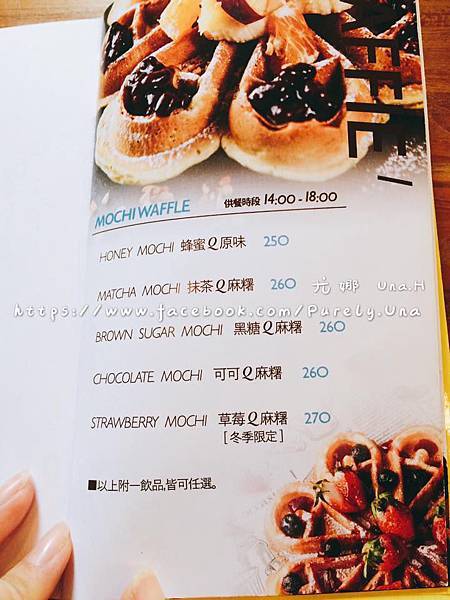 WAFFLE /
MOCHI WAFFLE 供餐時段 14:00 - 18:00
HONEY MOCHI 蜂蜜Q原味 250
MATCHA MOCHI 抹茶Q麻糬 260
尤娜 Una.H
https://www.facebook.com/Purely.Una
BROWN SUGAR MOCHI 黑糖Q麻糬 260
CHOCOLATE MOCHI 可可Q麻糬 260
STRAWBERRY MOCHI 草莓Q麻糬 270
[冬季限定]
■以上附一飲品,皆可任選。